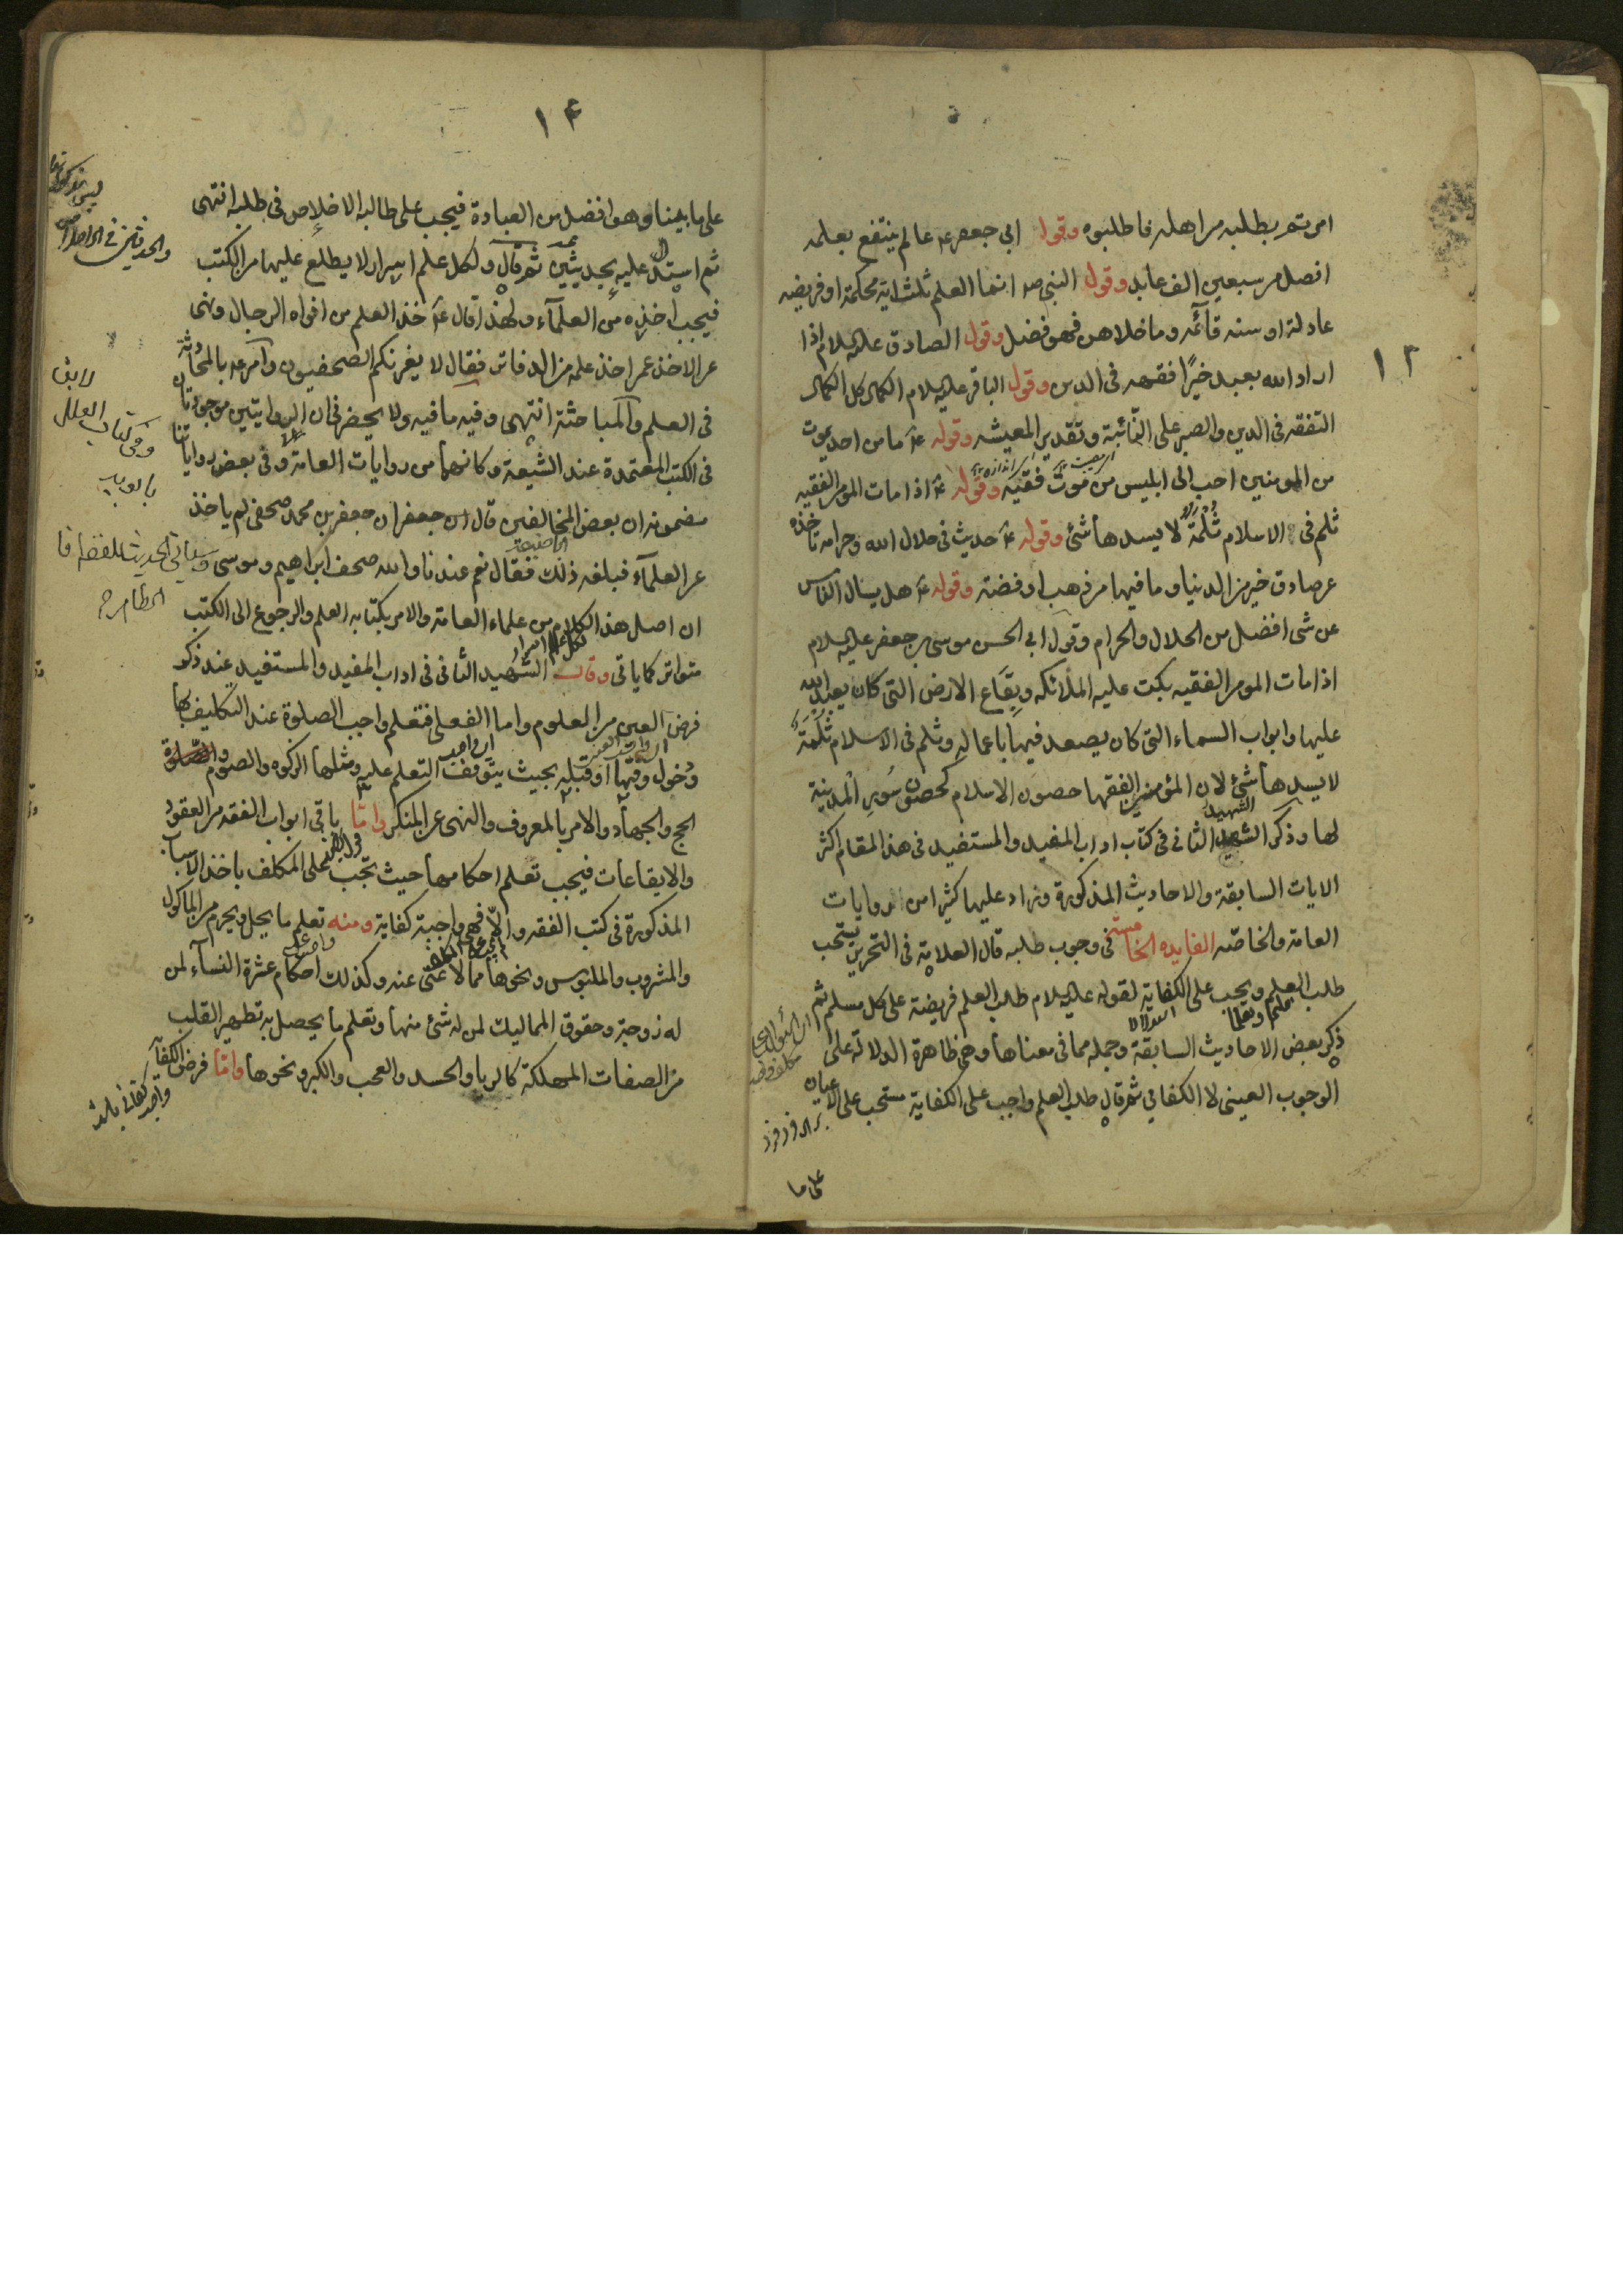 ١٣
امرتم بطلبه من اهله فاطلبوه وقول ابي جعفر ع عالم ينتفع بعلمه
افضل من سبعين الف عابد وقول النبي ص انما العلم ثلثة اية محكمة او فريضه
عادلة او سنه قائمه وما خلاهن فهو فضل وقول الصادق عليه السلام اذا
اراد الله بعبد خيرًا فقهه في الدين وقول الباقر عليه السلام الكمال كل الكمال
التفقه في الدين والصبر على النائبة وتقدير المعيشه وقوله ع ما من احد يموت
من المومنين احب الى ابليس من موت فقيه وقوله ع اذا مات المومن الفقيه
ثلم في الاسلام ثلمة لا يسدها شئ وقوله ع حديث في حلال الله وحرامه تاخذه
من صادق خير من الدنيا وما فيها من ذهب او فضة وقوله ع هل يسال الناس
عن شى افضل من الحلال والحرام وقول ابي الحسن موسى بن جعفر عليه السلام
اذا مات المومن الفقيه بكت عليه الملائكه وبقاع الارض التى كان يعبد الله
عليها وابواب السماء التى كان يصعد فيها باعماله وثلم في الاسلام ثلمة
لا يسدها شئ لان المؤمنين الفقها حصون الاسلام كحصون سور المدينة
لها وذكر الشهيد الثاني في كتاب اداب المفيد والمستفيد في هذا المقام اكثر
الايات السابقة والاحاديث المذكورة وزاد عليها كثيرا من روايات
العامة والخاصه الفايده الخامسة في وجوب طلبه قال العلامة في التحرير يستحب
طلب العلم ويجب على الكفاية لقوله عليه السلام طلب العلم فريضة على كل مسلم ثم
ذكر بعض الاحاديث السابقة وجمله مما في معناها وهى ظاهرة الدلالة على
الوجوب العينى لا الكفائي ثم قال طلب العلم واجب على الكفاية مستحب على الاعيان
على ما
١۴
على ما بينا وهو افضل من العبادة فيجب على طالبه الاخلاص في طلبه انتهى
ثم استدل عليه بحديثين ثم قال ولكل علم اسرار لا يطلع عليها من الكتب
فيجب اخذه من العلماء ولهذا قال ع خذ العلم من افواه الرجال ونهى
عن الاخذ عمن اخذ علمه من الدفاتر فقال لا يغرنكم الصحفيون وامر ع بالمحادثة
في العلم والمباحثة انتهى وفيه ما فيه ولا يحضرني ان الروايتين موجودتان
في الكتب المعتمدة عند الشيعة وكانهما من روايات العامة وفي بعض رواياتنا
مضمونه ان بعض المخالفين قال ان جعفر بن محمد صحفى لم ياخذ
عن العلماء فبلغه ذلك فقال نعم عندنا والله صحف ابراهيم وموسى
ان اصل هذا الكلام من علماء العامة والامر بكتابه العلم والرجوع الى الكتب
متواتر كما ياتى وقال الشهيد الثانى في اداب المفيد والمستفيد عند ذكر
فرض العين من العلوم واما الفعل فتعلم واجب الصلوة عند التكليف بها
ودخول وقتها او قبله بحيث يتوقف التعلم عليه ومثلها الزكوه والصوم
الحج والجهاد والامر بالمعروف والنهى عن المنكر واما باقى ابواب الفقه من العقود
والايقاعات فيجب تعلم احكامها حيث تجب على المكلف باخذ الاسباب
المذكورة في كتب الفقه والا فهى واجبة كفاية ومنه تعلم ما يحل ويحرم من الماكول
والمشروب والملبوس ونحوها مما لا غنى عنه وكذلك احكام عشرة النساء لمن
له زوجة وحقوق المماليك لمن له شئ منها وتعلم ما يحصل به تطهير القلب
من الصفات المهلكة كالريا والحسد والعجب والكبر ونحوها واما فرض الكفاية
وفي كتاب العلل